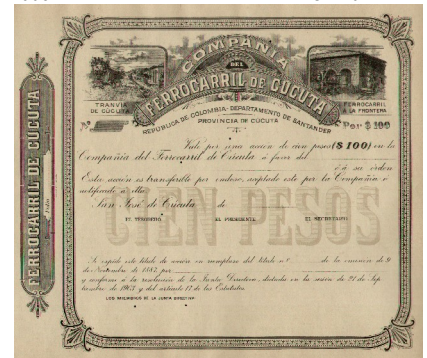 COMPAÑIA
DEL
FERROCARRIL DE CÚCUTA
TRANVIA
DE CÚCUTA
FERROCARRIL
A LA FRONTERA
REPÚBLICA DE COLOMBIA - DEPARTAMENTO DE SANTANDER
PROVINCIA DE CÚCUTA
Nº
Por $ 100
Vale por una acción de cien pesos ($ 100) en la
Compañia del Ferrocarril de Cúcuta á favor del
ó á su orden
Esta acción es transferible por endoso, aceptado este por la Compañia ó
notificado á ella.
San José de Cúcuta de
EL TESORERO EL PRESIDENTE EL SECRETARIO
CIEN PESOS
Se expide este título de acción en reemplazo del título nº de la emisión de 9
de Noviembre de 1882 por
y conforme á la resolución de la Junta Directiva, dictada en la sesión de 21 de Sep
tiembre de 1903 y del artículo 17 de los Estatutos.
LOS MIEMBROS DE LA JUNTA DIRECTIVA
FERROCARRIL DE CÚCUTA